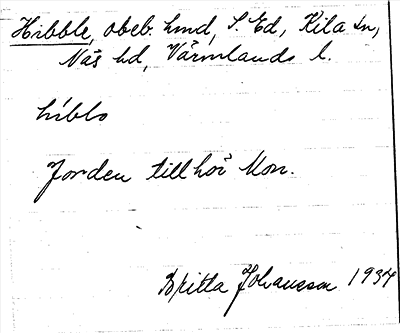 Hibble, obeb. hmd, S. Ed, Kila sn,
Näs hd, Värmlands l.
hìblo
Jorden tillhör Mon.
Britta Johansson 1934